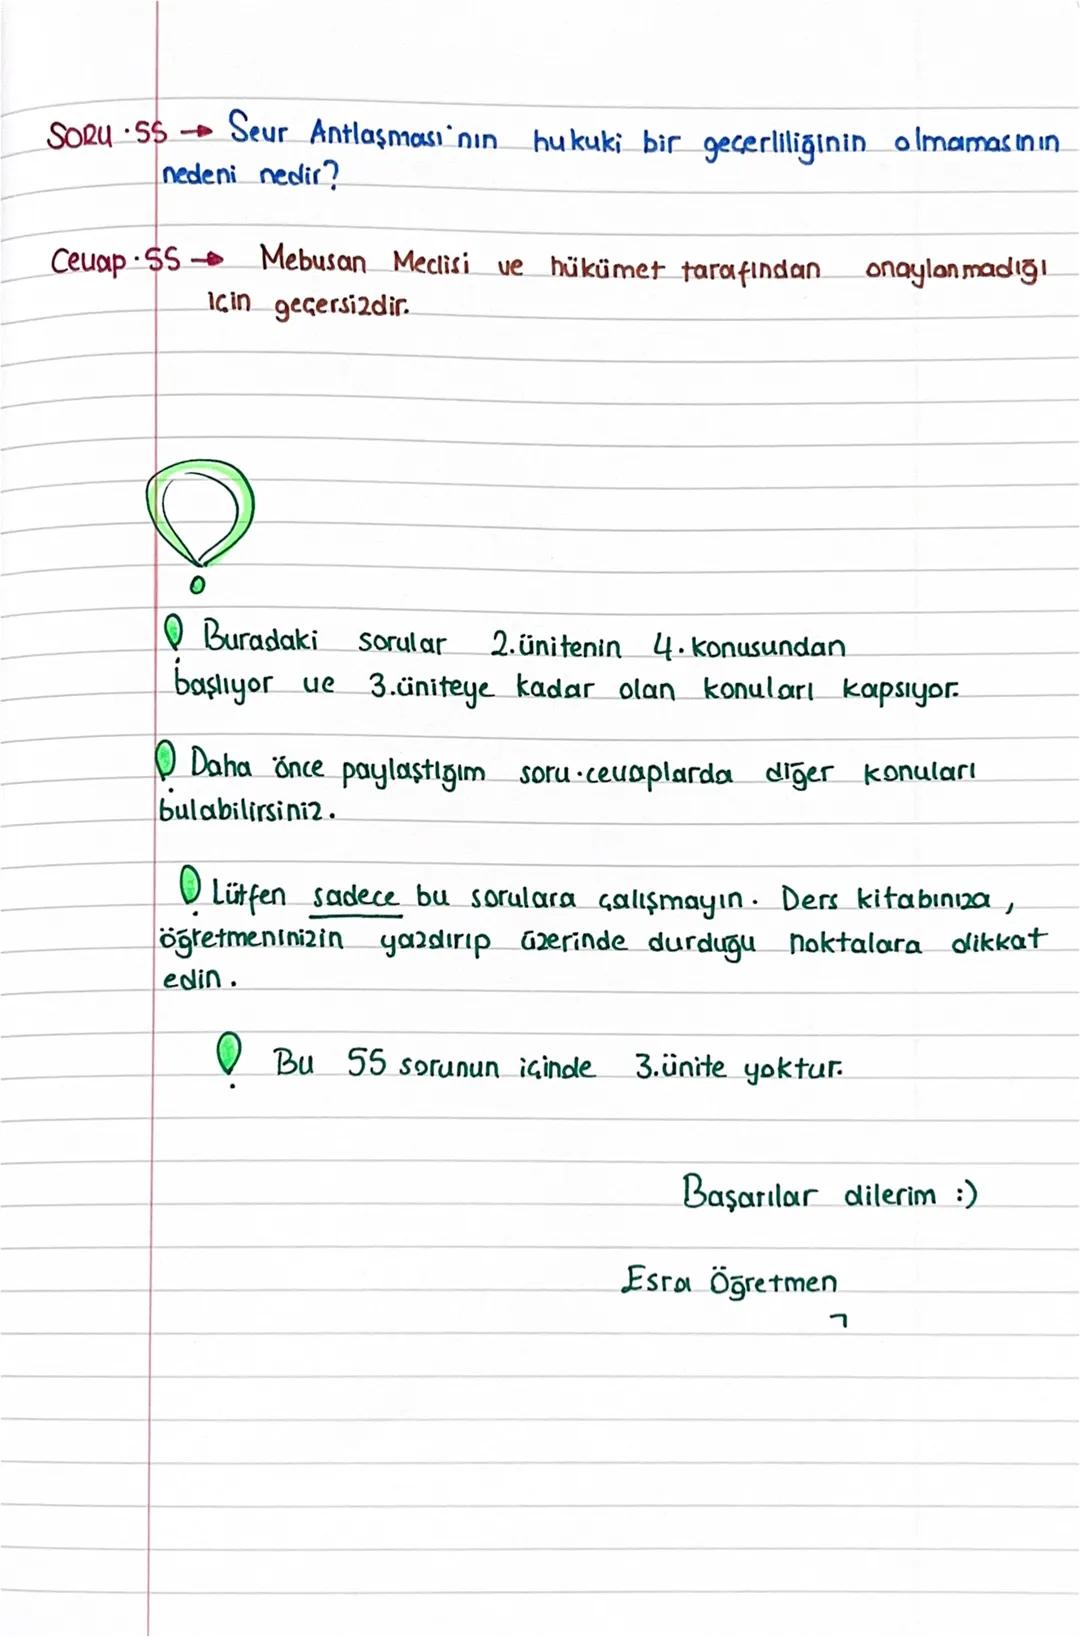 SORU.55 → Sevr Antlaşması'nın hukuki bir geçerliliğinin olmamasının
nedeni nedir?
Cevap.55 → Mebusan Meclisi ve hükümet tarafından onaylanmadığı
için geçersizdir.
Buradaki sorular 2.ünitenin 4.konusundan
başlıyor ve 3.üniteye kadar olan konuları kapsıyor.
Daha önce paylaştığım soru.cevaplarda diğer konuları
bulabilirsiniz.
Lütfen sadece bu sorulara çalışmayın. Ders kitabınıza,
öğretmeninizin yazdırıp üzerinde durduğu noktalara dikkat
edin.
Bu 55 sorunun içinde 3.ünite yoktur.
Başarılar dilerim :)
Esra Öğretmen